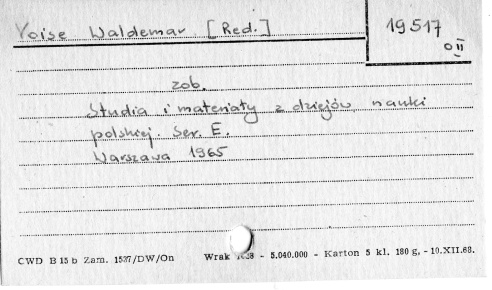 Voise Waldemar [Red.]
19517
O II
zob.
Studia i materiały z dziejów nauki
polskiej. Ser. E.
Warszawa 1965
CWD B 15 b Zam. 1537/DW/On Wrak - 5.040.000 - Karton 5 kl. 180 g, - 10.XII.63.